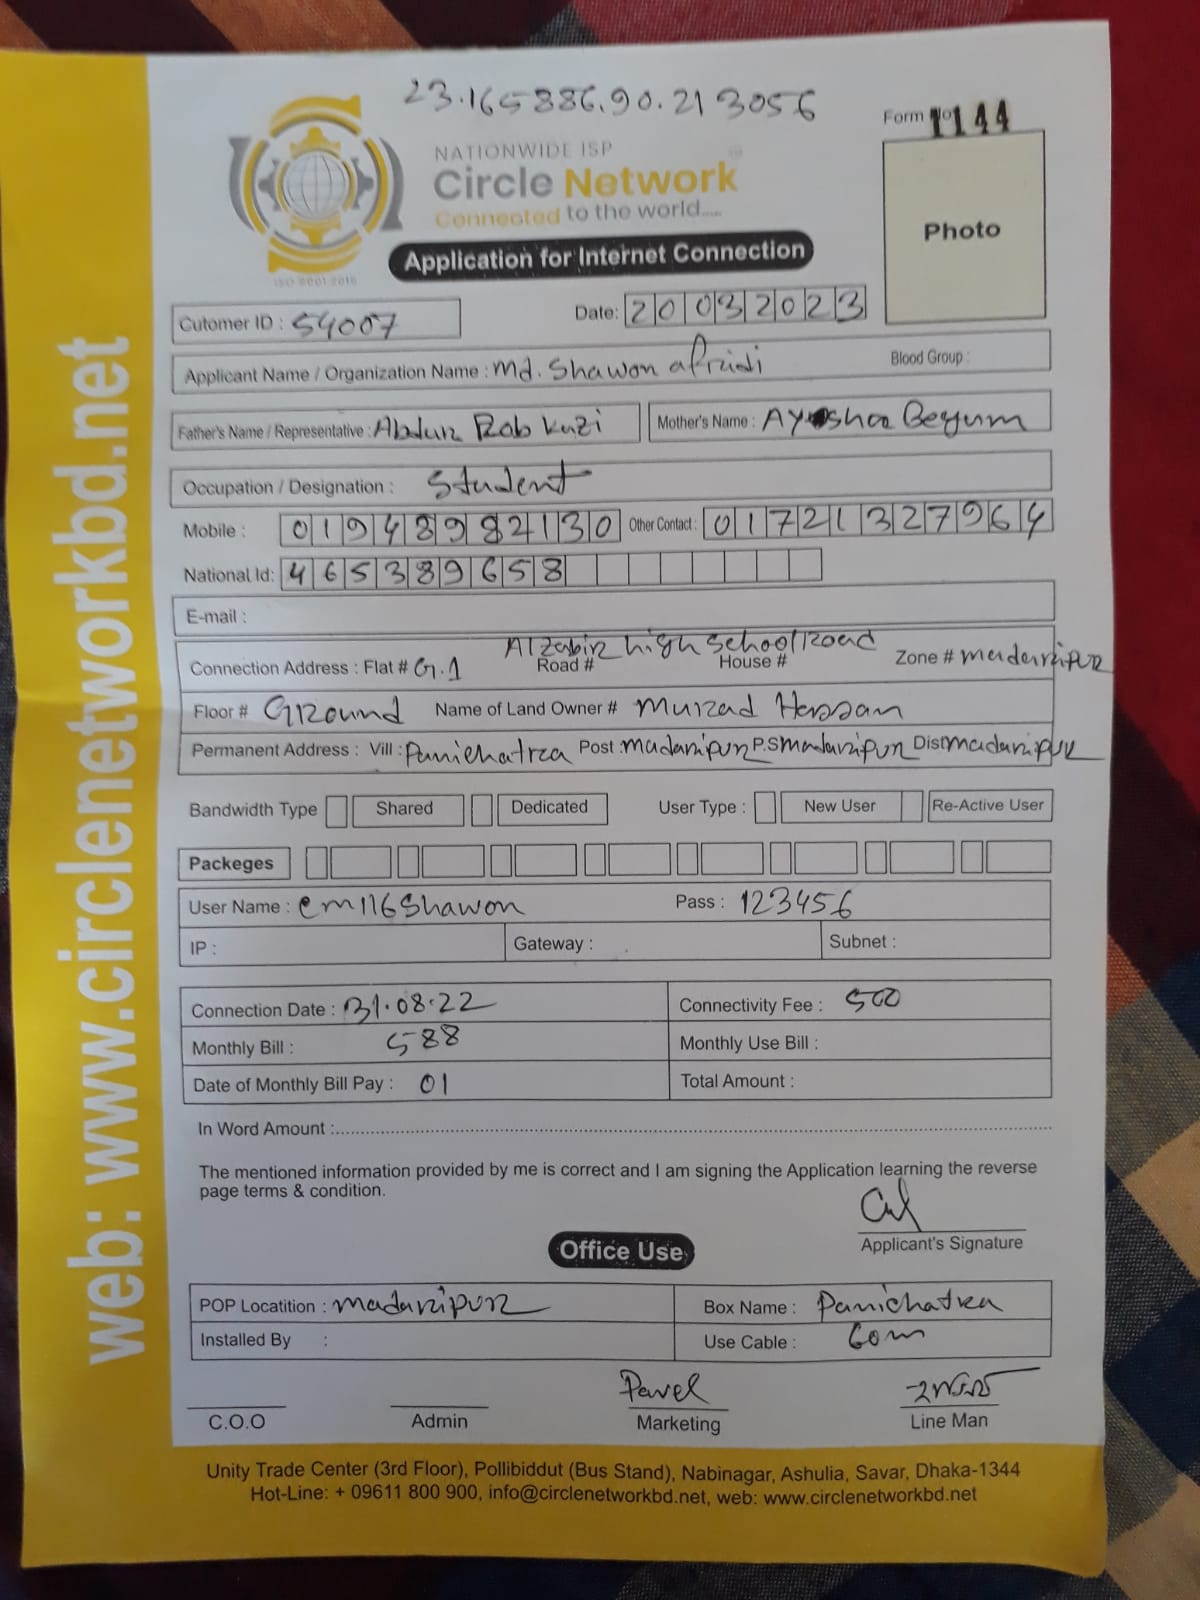 23.165886.90.213056
Form No 1144
NATIONWIDE ISP
Circle Network
Connected to the world.....
ISO 9001:2015
Photo
Application for Internet Connection
Cutomer ID : 54007
Date: 20032023
Applicant Name / Organization Name : Md. Shawon afridi
Blood Group :
Father's Name / Representative : Abdur Rob kazi
Mother's Name : Ayesha Begum
Occupation / Designation : Student
Mobile : 01948982130 Other Contact : 01721327964
National Id: 465389658
E-mail :
Connection Address : Flat # G.1 Road # House # Al Zabir high School Road Zone # madaripur
Floor # Ground Name of Land Owner # Murad Hassan
Permanent Address : Vill : Panichatra Post : madaripur P.S madaripur Dist madaripur
Bandwidth Type Shared Dedicated User Type : New User Re-Active User
Packeges
User Name : em116Shawon Pass : 123456
IP : Gateway : Subnet :
Connection Date : 31.08.22 Connectivity Fee : 500
Monthly Bill : 588 Monthly Use Bill :
Date of Monthly Bill Pay : 01 Total Amount :
In Word Amount :
The mentioned information provided by me is correct and I am signing the Application learning the reverse
page terms & condition.
Applicant's Signature
Office Use
POP Locatition : madaripur Box Name : Panichatra
Installed By : Use Cable :
Pavel
C.O.O Admin Marketing Line Man
Unity Trade Center (3rd Floor), Pollibiddut (Bus Stand), Nabinagar, Ashulia, Savar, Dhaka-1344
Hot-Line: + 09611 800 900, info@circlenetworkbd.net, web: www.circlenetworkbd.net
web: www.circlenetworkbd.net